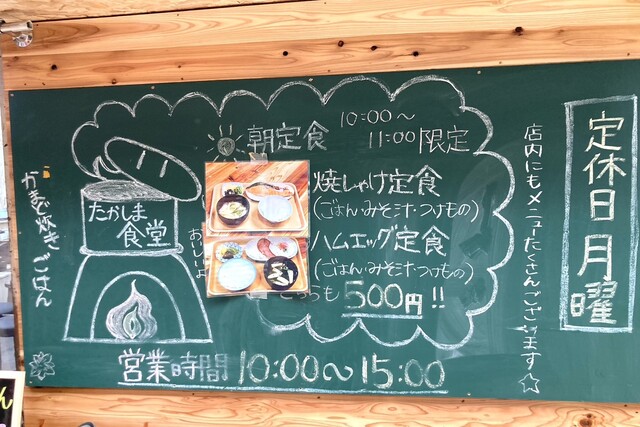 定休日 月曜
店内にもメニューたくさんございます☆
朝定食
10:00〜
11:00限定
焼しゃけ定食
(ごはん・みそ汁・つけもの)
ハムエッグ定食
(ごはん・みそ汁・つけもの)
どちらも 500円!!
たかしま
食堂
おいしいよ
かまど炊きごはん
営業時間 10:00〜15:00
ん